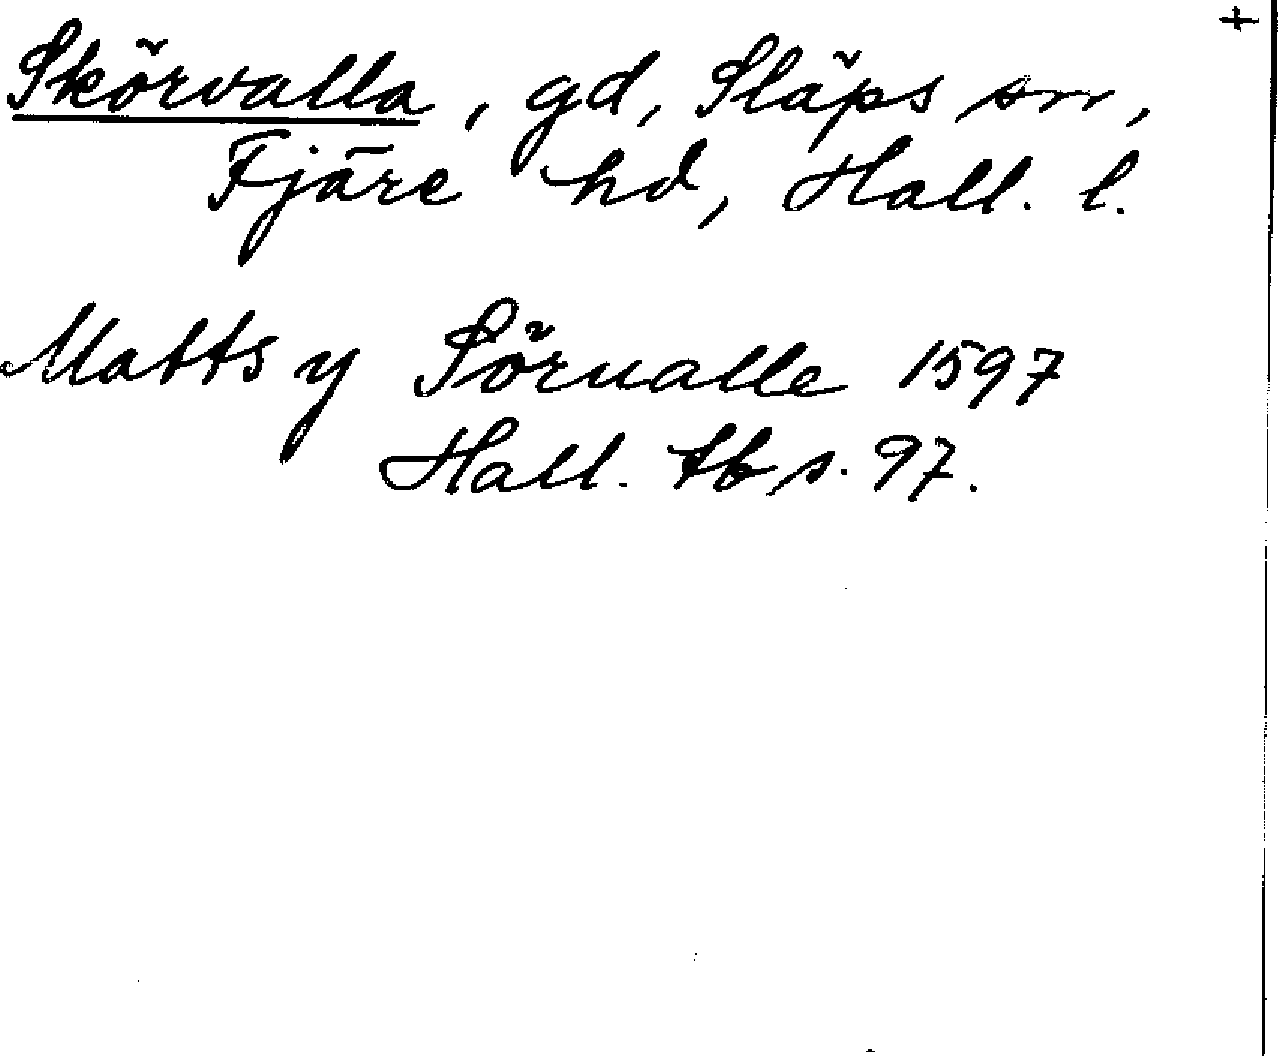 +
Skörvalla, gd, Släps sn,
Fjäre hd, Hall. l.
Matts y Sörualle 1597
Hall. tb s. 97.